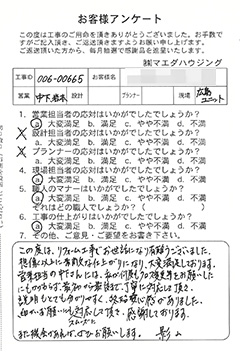 お客様アンケート
この度は工事のご用命を頂きありがとうございました。お手数で
すがご記入頂き、ご返送頂きますようお願い申し上げます。
ご返送頂いた方から、毎月抽選で感謝品を進呈いたします。
㈱マエダハウジング
工事ID 006-00665 お客様名
営業 中下、岩本 プランナー 現場 広島ユニット
1. 営業担当者の応対はいかがでしたでしょうか？
a 大変満足 b. 満足 c. やや不満 d. 不満
2. 設計担当者の応対はいかがでしたでしょうか？
a. 大変満足 b. 満足 c. やや不満 d. 不満
3. プランナーの応対はいかがでしたでしょうか？
a. 大変満足 b. 満足 c. やや不満 d. 不満
4. 現場担当者の応対はいかがでしたでしょうか？
a 大変満足 b. 満足 c. やや不満 d. 不満
5. 職人のマナーはいかがでしたでしょうか？
a 大変満足 b. 満足 c. やや不満 d. 不満
それはどの職人でしょうか？（ ）
6. 工事の仕上がりはいかがでしたでしょうか？
a 大変満足 b. 満足 c. やや不満 d. 不満
7. その他、ご意見・ご要望をお書き下さい。
この度は、リフォーム工事でお世話になり有難うございました。
想像以上に素敵な仕上がりになり、大変満足しております。
営業担当の中下さんには、私の何度もプラン変更をお願いした
にもかかわらず、最初から最後まで、丁寧に対応して頂き、
説明もとても分かりやすく、終始安心感がありました。
細かいお願いにもスムーズに対応して頂き、感謝しております。
また機会があれば、ぜひお願いします。